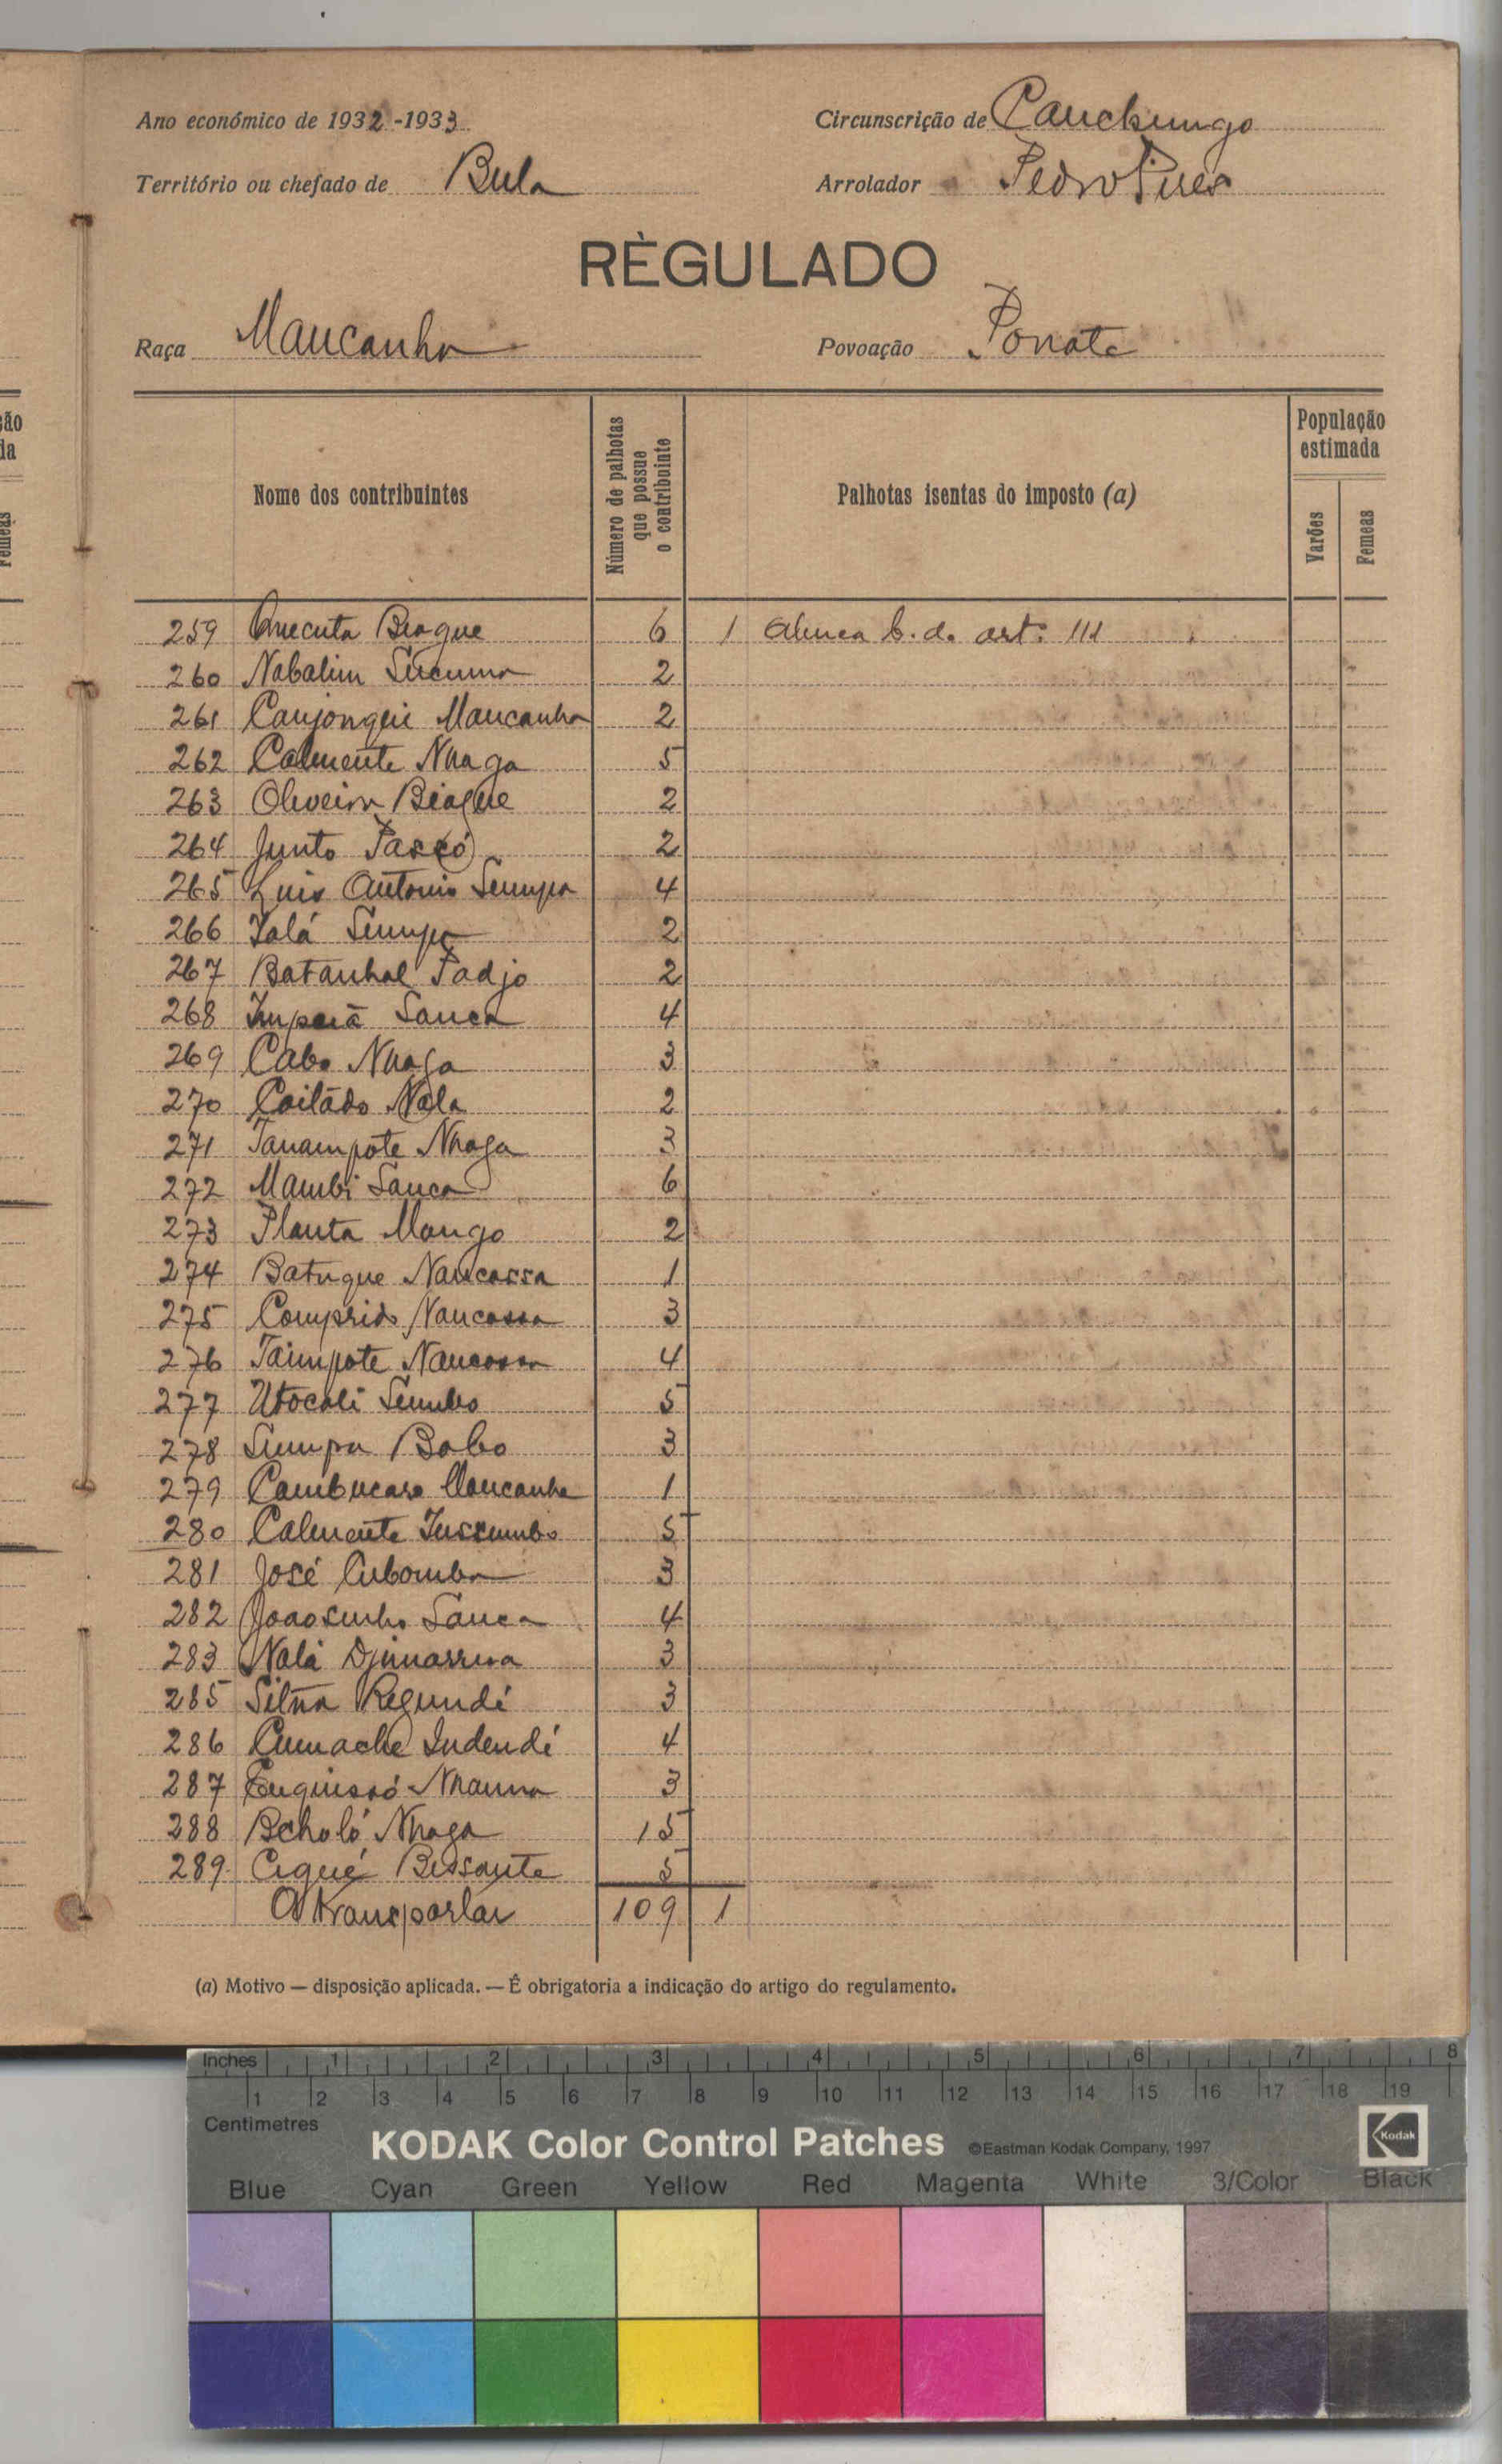 Ano económico de 1932-1933
Circunscrição de Canchungo
Território ou chefado de Bula
Arrolador Pedro Pires
RÈGULADO
Raça Mancanha
Povoação Ponate
ção
da
Femeas
Nome dos contribuintes
Número de palhotas que possue o contribuinte
Palhotas isentas do imposto (a)
População estimada
Varões
Femeas
259 Quecuta Biague 6 1 alinea b. do art. 111
260 Nabalim 2
261 Canjongue Mancanha 2
262 Calmente Nhaga 5
263 Oliveira Biague 2
264 Junto 2
265 Luis Antonio Sumpa 4
266 Sumpa 2
267 Batanhal Padjo 2
268 Sanca 4
269 Cabo Nhaga 3
270 Coitádo Nala 2
271 Tanampote Nhaga 3
272 Mambi Sanca 6
273 Planta Mango 2
274 Batuque Nancassa 1
275 Comprido Nancassa 3
276 Taimpote Nancassa 4
277 Utocoli 5
278 Sumpa Bobo 3
279 Mancanha 1
280 Calmente 5
281 José Cubomba 3
282 Joaosinho Sanca 4
283 Nalá 3
285 Regundé 3
286 Cumache Indendé 4
287 3
288 Becholó Nhaga 15
289 Ciqué Bessonte 5
A transportar 109 1
(a) Motivo — disposição aplicada. — É obrigatoria a indicação do artigo do regulamento.
Inches 1 2 3 4 5 6 7 8
1 2 3 4 5 6 7 8 9 10 11 12 13 14 15 16 17 18 19
Centimetres
KODAK Color Control Patches ©Eastman Kodak Company, 1997 Kodak
Blue Cyan Green Yellow Red Magenta White 3/Color Black